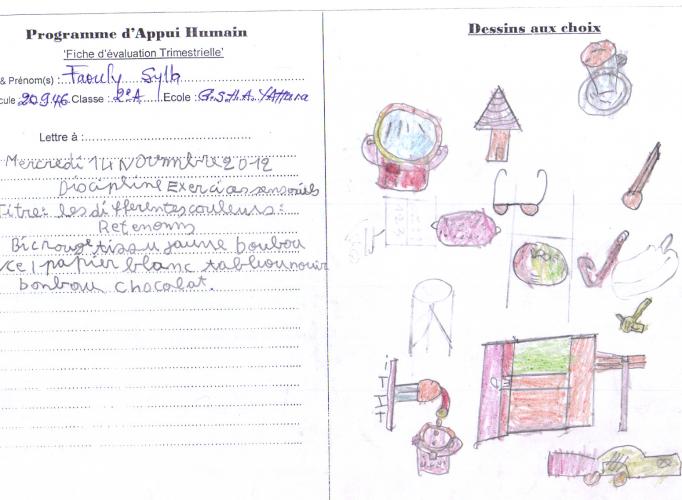 Programme d'Appui Humain
'Fiche d'évaluation Trimestrielle'
& Prénom(s) :...Faouly Sylla
cule 20946 Classe : 2èA Ecole : G.S.H.A. Yattara
Lettre à :
Mercredi 14 Novembre 2012
Discipline Exercices sensoriels
Titre: les différentes couleurs:
Retenons
Bic rouge tissu jaune boubou
papier blanc tabliounouir
bonbou chocolat.
Dessins aux choix